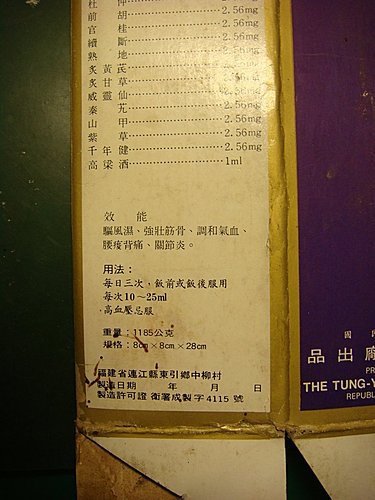 杜 仲
前 胡 2.56mg
官 桂 2.56mg
續 斷 2.56mg
熟 地 2.56mg
炙黃芪 2.56mg
炙甘草
威靈仙 2.56mg
秦 艽 2.56mg
山 甲 2.56mg
紫 草 2.56mg
千年健 2.56mg
高粱酒 1ml
效 能
驅風濕、強壯筋骨、調和氣血、
腰痠背痛、關節炎。
用法：
每日三次，飯前或飯後服用
每次10～25ml
高血壓忌服
重量：1185公克
規格：8cm×8cm×28cm
福建省連江縣東引鄉中柳村
製造日期 年 月 日
製造許可證 衛署成製字4115號
國
廠出品
THE TUNG-Y
REPUB